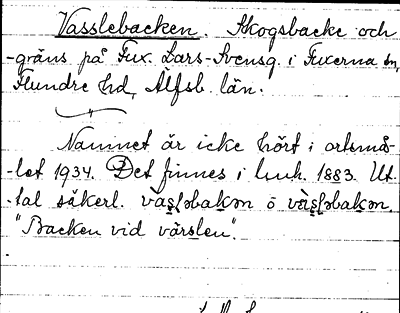 Vasslebacken. Skogsbacke och
-gräns på Fux. Lars-Svensg. i Fuxerna sn,
Flundre hd, Älfsb. län.
Namnet är icke hört i ortsmå-
-let 1934. Det finnes i luuk. 1883. Ut-
-tal säkerl.
"Backen vid värslen".